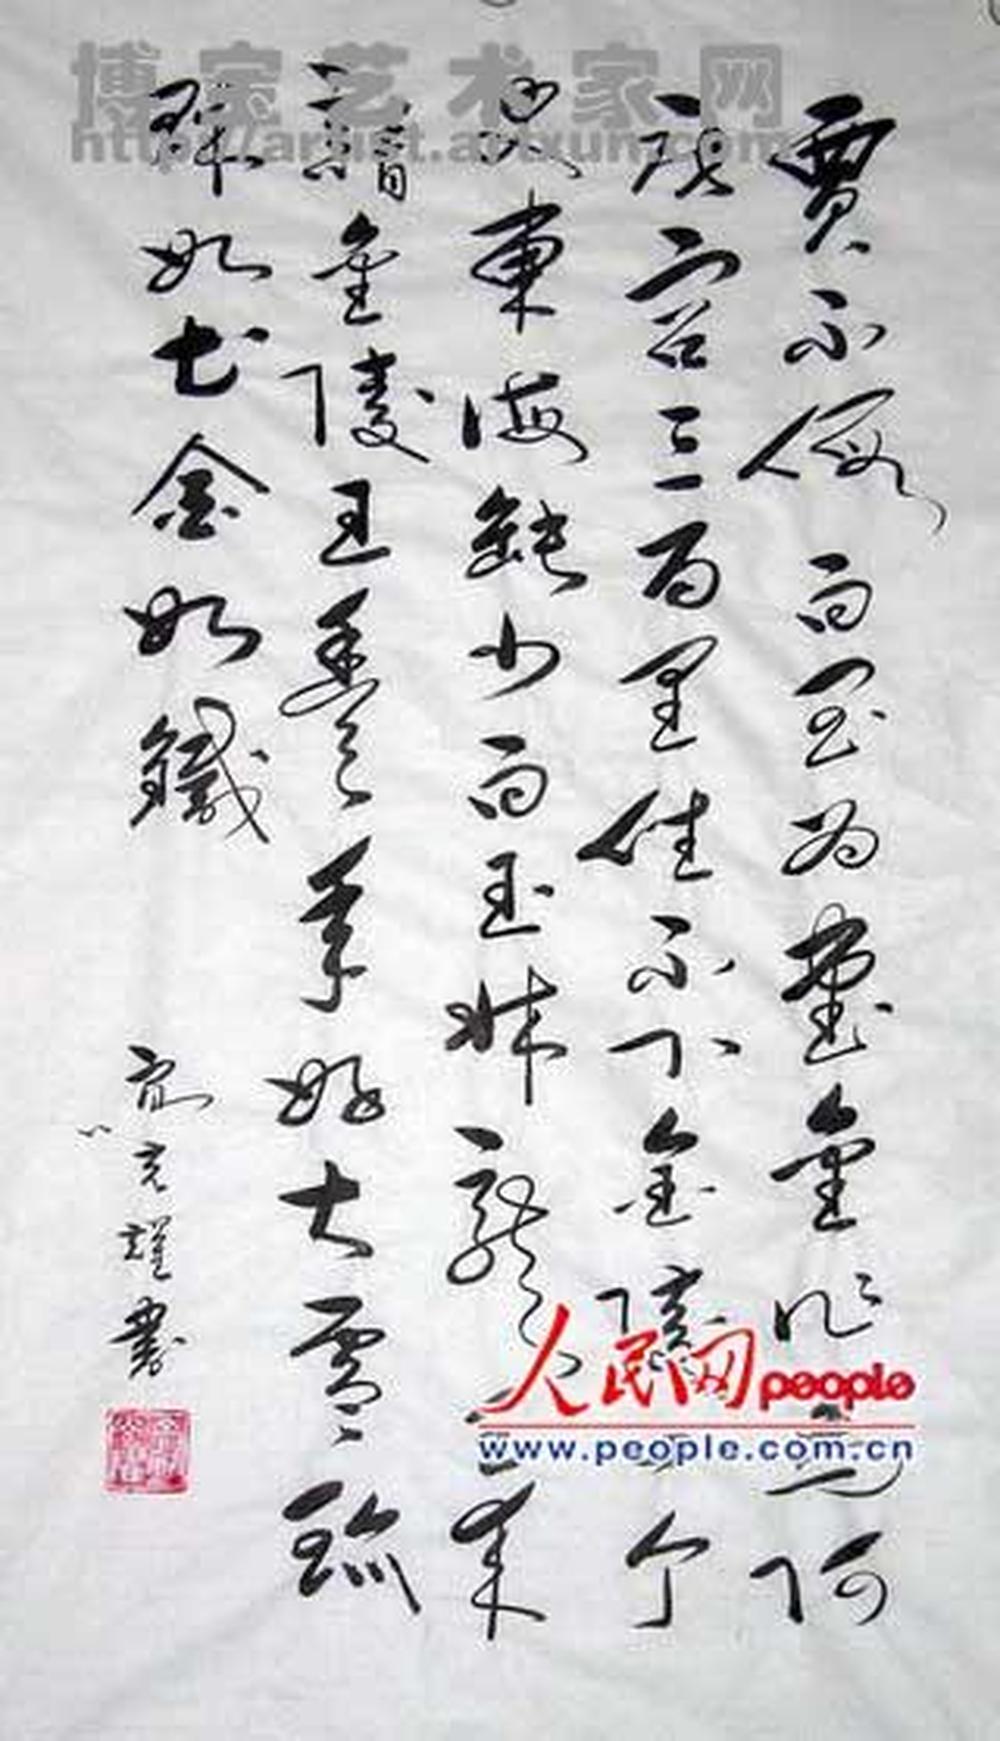 博宝艺术家网
http://artist.artxun.com
賈不假白玉为堂金作阿
房宫三百里住不下金陵个
史東海缺少白玉牀龍来
請金陵王豊年好大雪珍
珠如土金如鐵
克耀書
人民网 people
www.people.com.cn